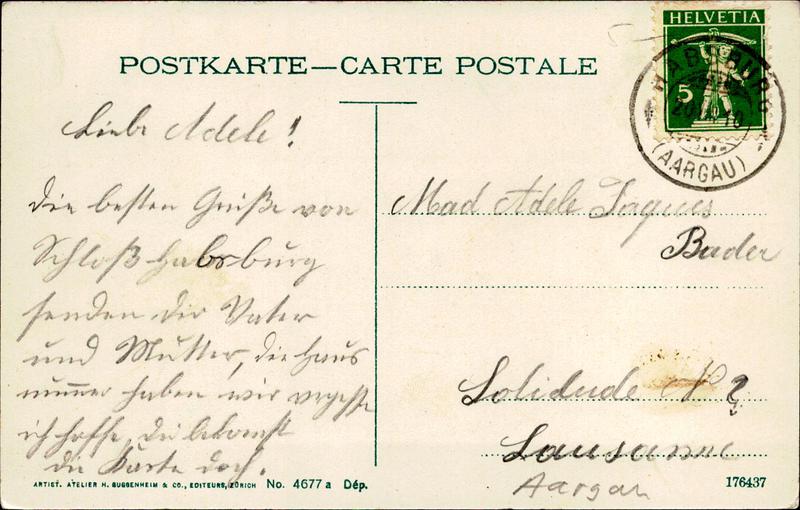 HELVETIA
5
HABSBURG
(AARGAU)
POSTKARTE—CARTE POSTALE
Liebe Adele!
Die besten Grüße von
Schloß Habsburg
senden dir Vater
und Mutter, die Haus
nummer haben wir vergesse
ich hoffe, du bekomst
die Karte doch.
Mad Adele Jaques
Bader
Solidude No ?
Lausanne
Aargau
ARTIST. ATELIER H. GUGGENHEIM & CO., EDITEURS, ZÜRICH No. 4677 a Dép.
176437